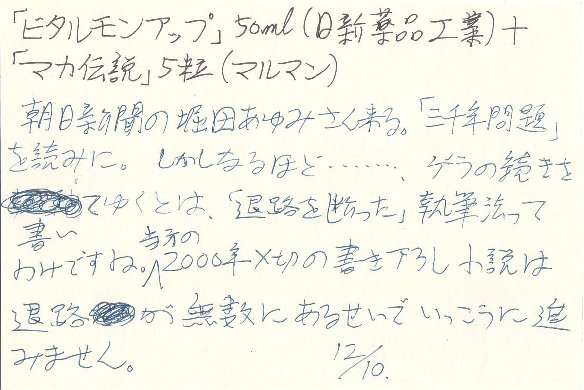 「ビタルモンアップ」50ml(日新薬品工業)+
「マカ伝説」5粒(マルマン)
朝日新聞の堀田あゆみさん来る。「三千年問題」
を読みに。しかしなるほど……、ゲラの続きを
書いてゆくとは、「退路を断った」執筆法って
わけですね。当方の2000年〆切の書き下ろし小説は
退路が無数にあるせいでいっこうに進
みません。 12/10.